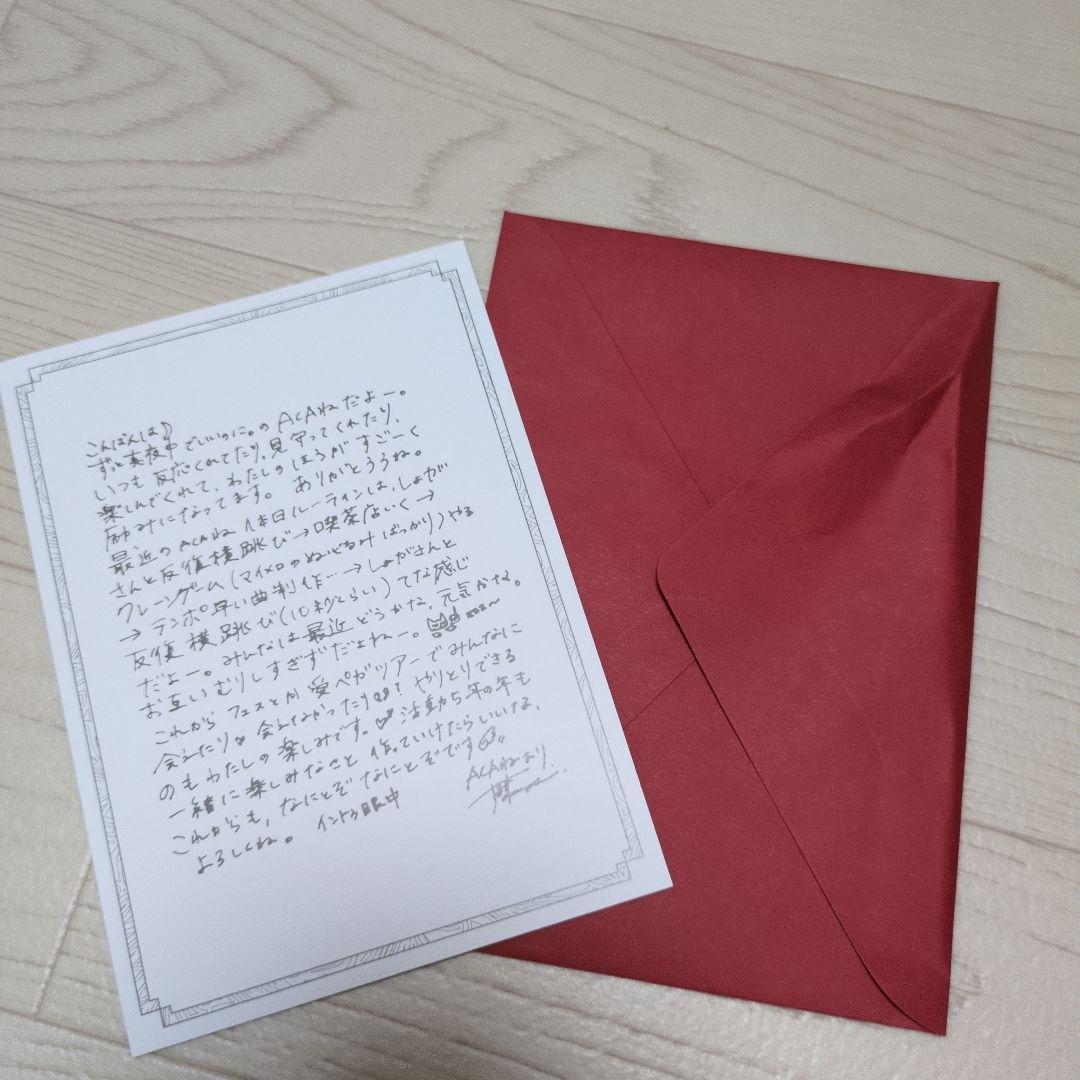 こんばんは♪
ずっと真夜中でいいのに。のACAねだよー。
いつも反応くれてたり、見守ってくれたり、
楽しんでくれて、わたしのほうがすごーく
励みになってます。ありがとううね。
最近のACAね休日ルーティンは、しょうが
さんと反復横跳び→喫茶店いく→
クレーンゲーム(マイメロのぬいぐるみばっかり)やる
→テンポ早い曲制作…→しょうがさんと
反復横跳び(10秒くらい)てな感じ
だよー。みんなは最近どうかな、元気かな。
お互いむりしすぎずだよねー。
これからフェスとか愛ペガツアーでみんなに
会えたり 会えなかったり やりとりできる
のもわたしの楽しみです。活動5年の年も
一緒に楽しみなこと作っていけたらいいな、
これからも、なにとぞなにとぞです
よろしくね。
ACAねより、